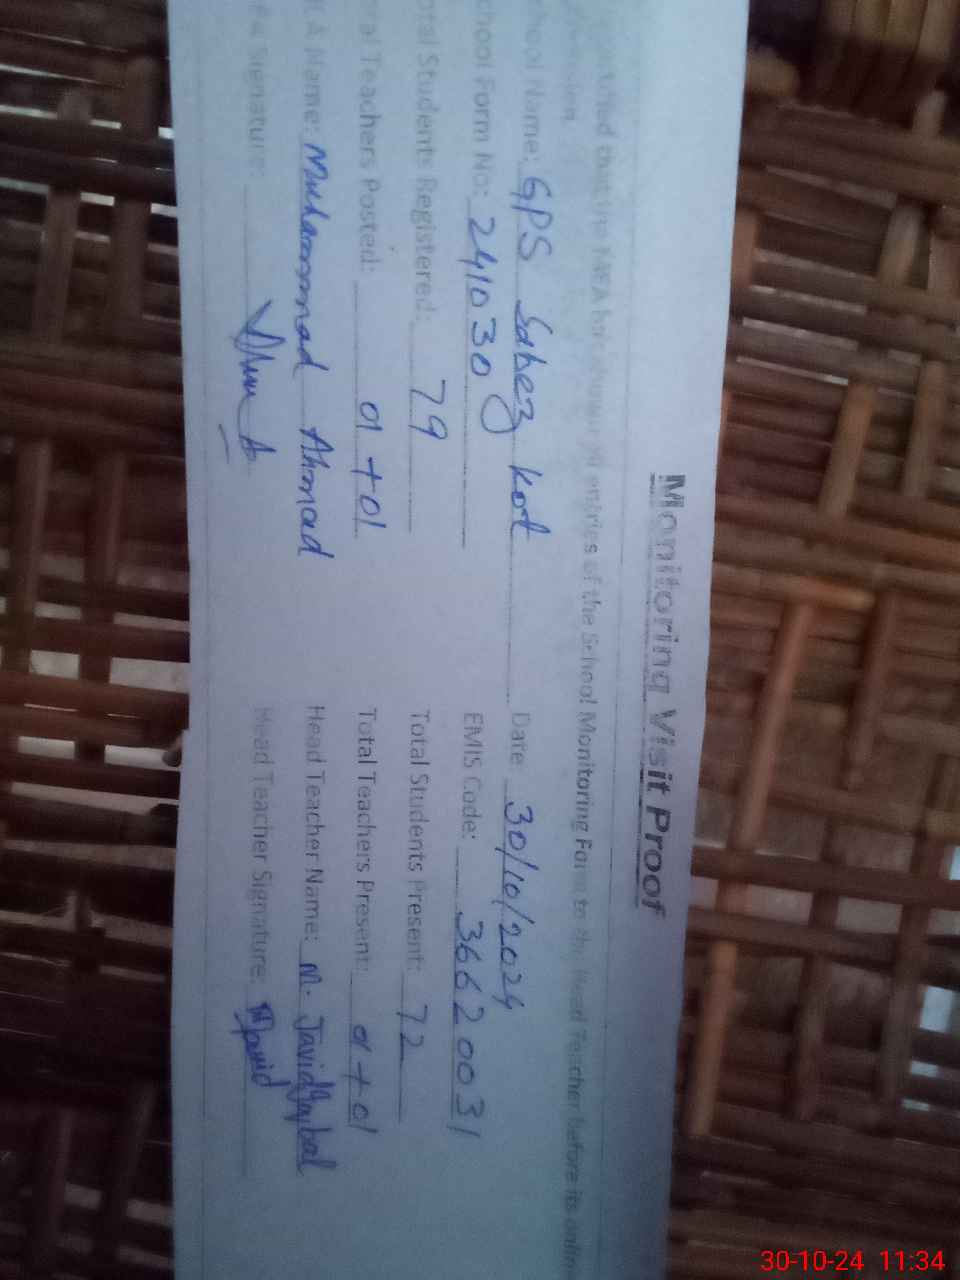 Monitoring Visit Proof
that the MEA has shown all entries of the School Monitoring Form to the Head Teacher before its online
School Name: GPS Sabez kot Date 30/10/2024
School Form No: 241030 EMIS Code: 36620031
Total Students Registered: 79 Total Students Present: 72
Total Teachers Posted: 01+01 Total Teachers Present: 01+01
MEA Name: Muhammad Ahmad Head Teacher Name: M. Javid Iqbal
MEA Signature: Head Teacher Signature: M Javid
30-10-24 11:34